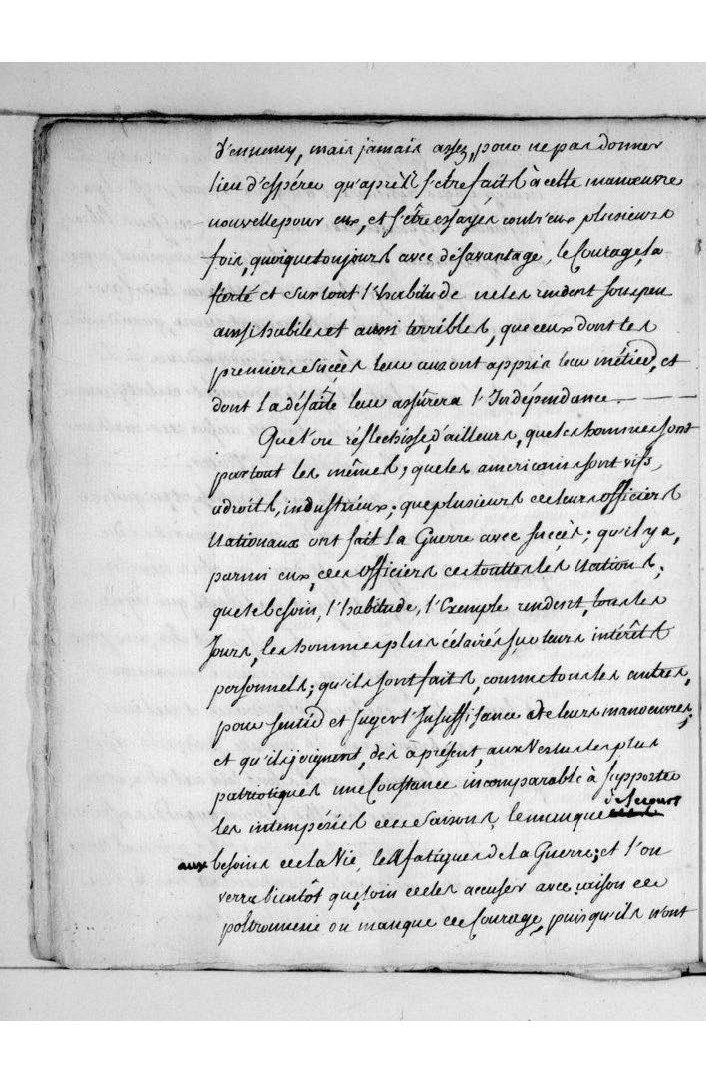 d'ennemy, mais jamais assez, pour ne pas donner
lieu d'espérer qu'après s'être faits à cette manœuvre
nouvelle pour eux, et s'être essayés contr'eux plusieurs
fois, quoique toujours avec désavantage, le Courage, la
fierté et surtout l'habitude ne les rendent sous peu
aussi habiles et aussi terribles, que ceux dont les
premiers succès leur auront appris leur métier, et
dont la défaite leur assurera l'Indépendance.
Que l'on réflechisse, d'ailleurs, que les hommes sont
partout les mêmes; que les americains sont vifs,
adroits, industrieux; que plusieurs de leurs officiers
Nationaux ont fait la Guerre avec succès; qu'il y a,
parmi eux, des officiers de toutes les Nations;
que le besoin, l'habitude, l'Exemple rendent, tous les
Jours, les hommes plus éclairés sur leurs intérêts
personnels; qu'ils sont faits, comme tous les autres,
pour sentir et juger l'Insuffisance de leurs manœuvres;
et qu'ils joignent, dès à présent, aux Vertus les plus
patriotiques une Constance incomparable à supporter
les intempéries des Saisons, le manque de secours
aux besoins de la Vie, les fatigues de la Guerre; et l'on
verra bientôt que, loin de les accuser avec raison de
poltronnerie ou manque de Courage, puisqu'ils n'ont